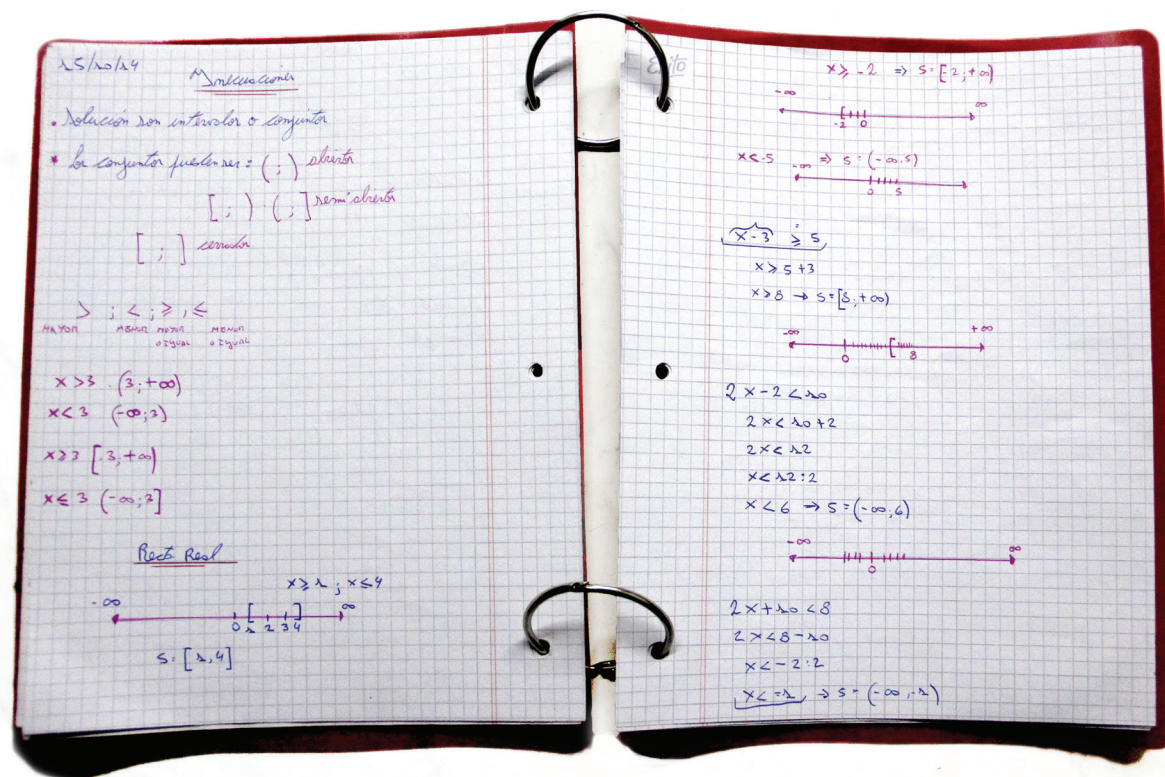 15/10/14
Inecuaciones
• Solución son intervalos o conjuntos
* Los conjuntos pueden ser: ( ; ) abiertos
[ ; ) · ( ; ] semi abiertos
[ ; ] cerrados
> ; < ; ≥ , ≤
MAYOR MENOR MAYOR O IGUAL MENOR O IGUAL
x > 3 . (3 ; +∞)
x < 3 (-∞ ; 3)
x ≥ 3 [ 3 ; +∞)
x ≤ 3 (-∞ ; 3]
Recta Real
x ≥ 1 ; x ≤ 4
-∞ ∞
0 1 2 3 4
S = [1, 4]
Éxito
x ≥ -2 => S = [-2 ; +∞)
-∞ ∞
-2 0
x < 5 => S = (-∞ . 5)
-∞
0 5
x - 3 ≥ 5
x ≥ 5 + 3
x ≥ 8 → S = [8 ; +∞)
-∞ +∞
0 8
2x - 2 < 10
2x < 10 + 2
2x < 12
x < 12 : 2
x < 6 → S = (-∞ ; 6)
-∞ ∞
0
2x + 10 < 8
2x < 8 - 10
x < -2 : 2
x < -1 → S = (-∞, -1)